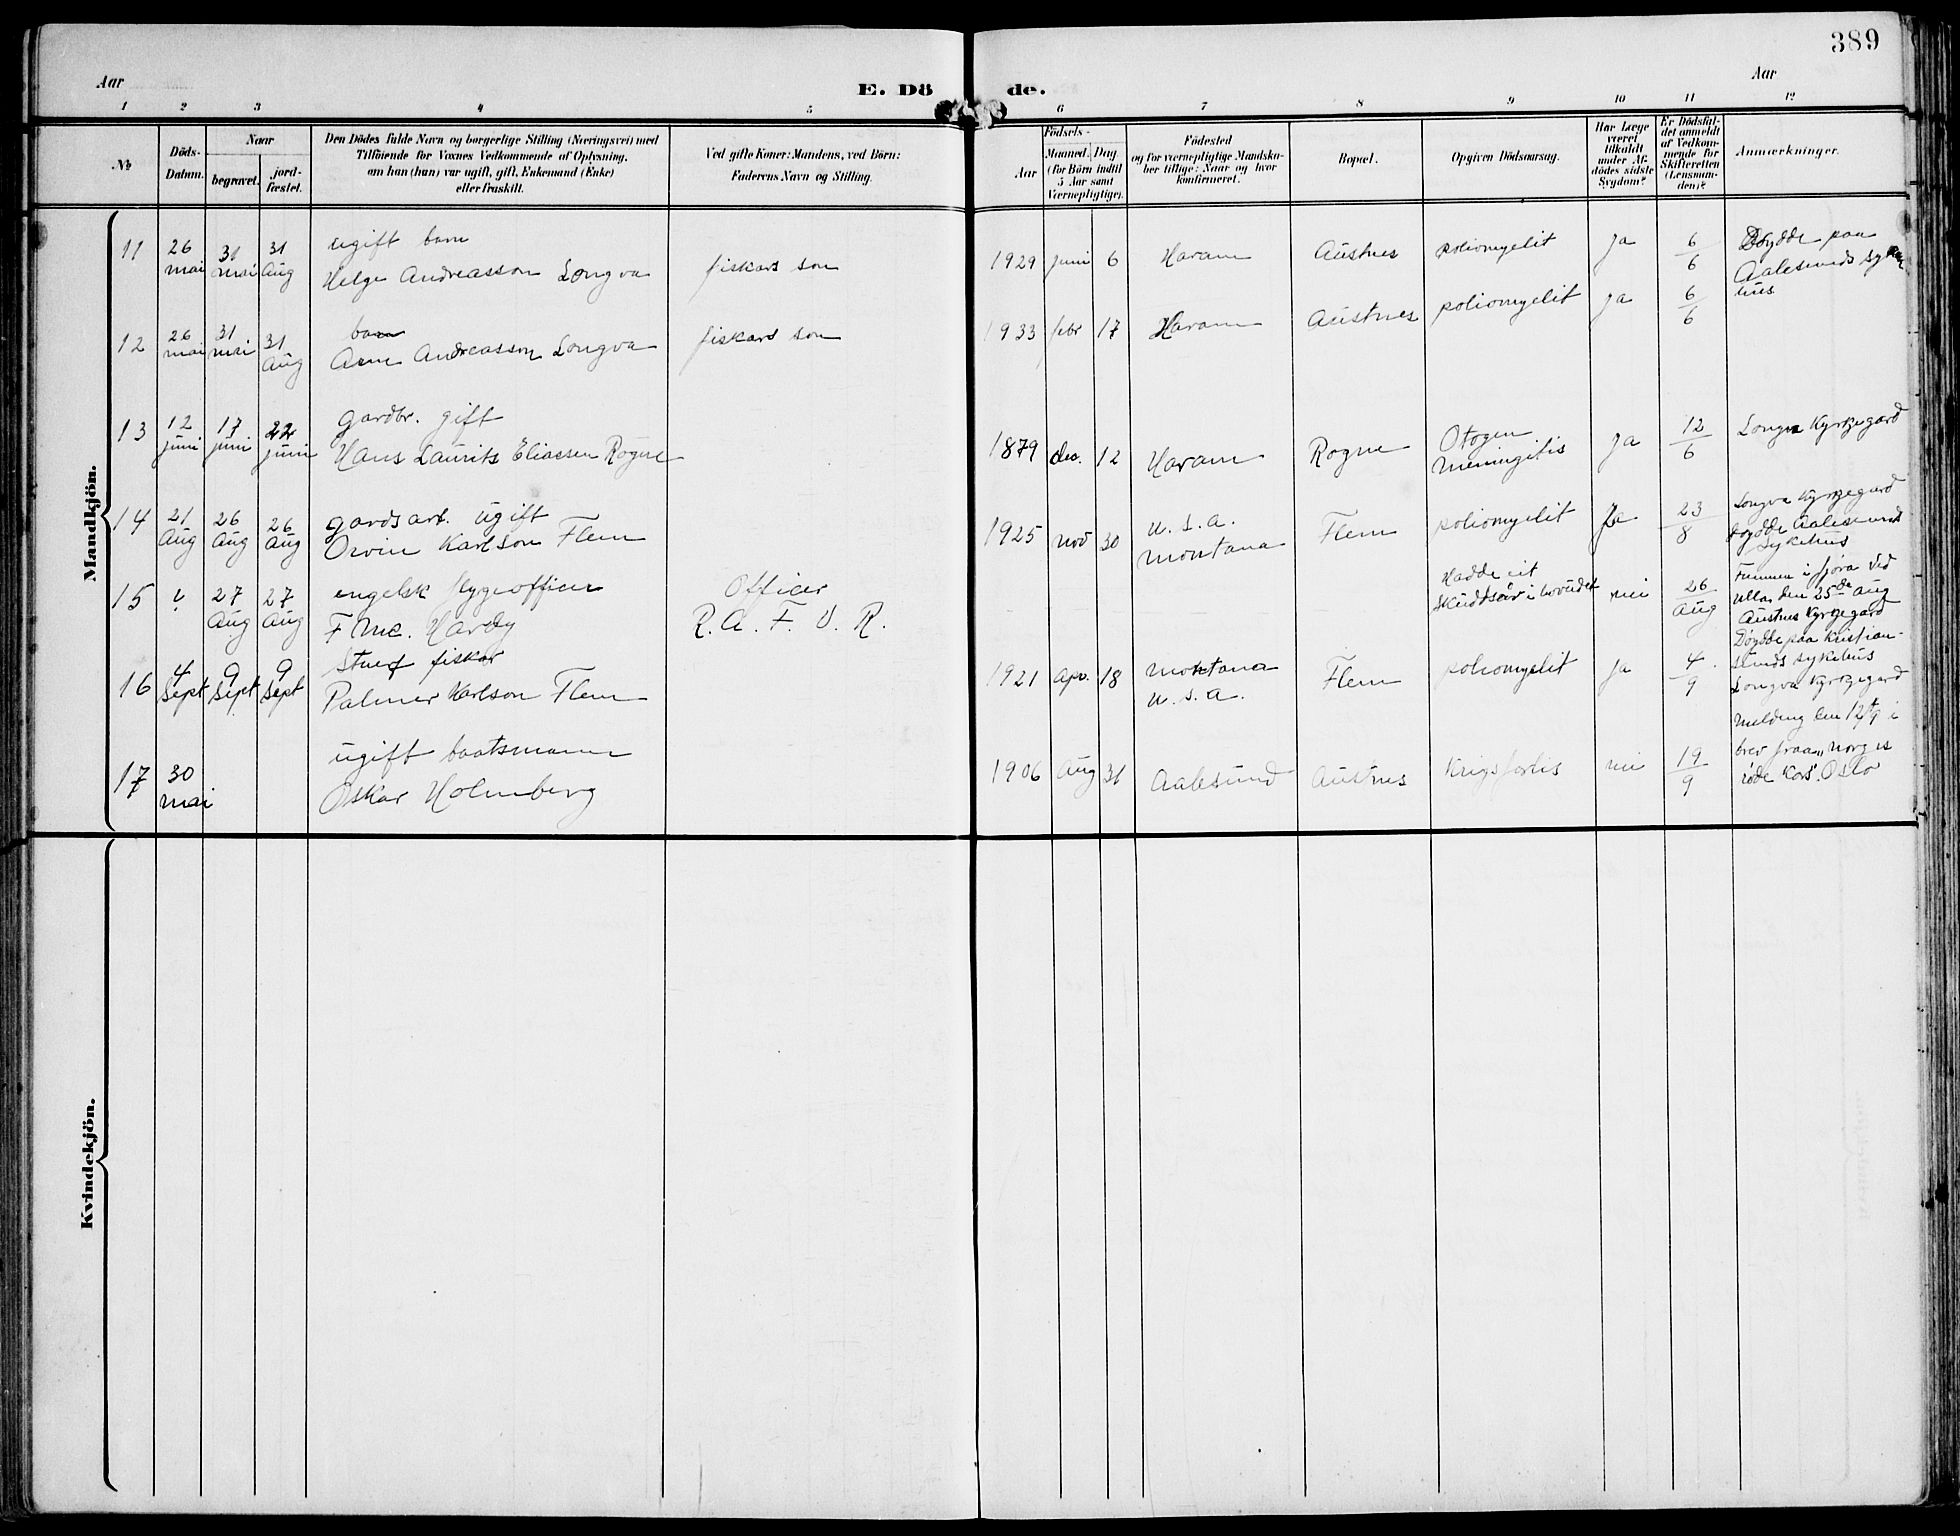 389
Aar
E. Dö
de.
Aar
1 2 3 4 5 6 7 8 9 10 11 12
No
Döds-
Datum.
Naar
begravet.
jord-
fæstet.
Den Dödes fulde Navn og borgerlige Stilling (Næringsvei) med
Tilföiende for Voxnes Vedkommende af Oplysning,
om han (hun) var ugift, gift, Enkemand (Enke)
eller fraskilt.
Ved gifte Koner: Mandens, ved Börn:
Faderens Navn og Stilling.
Födsels-
Aar
Maaned. Dag
(for Börn indtil
5 Aar samt
Værnepligtige).
Födested
og for værnepligtige Mandska-
ber tillige: Naar og hvor
konfirmeret.
Bopæl.
Opgiven Dödsaarsag.
Har Læge
været
tilkaldt
under Af-
dödes sidste
Sygdom?
Er Dödsfal-
det anmeldt
af Vedkom-
mende for
Skifteretten
(Lensman-
den)?
Anmærkninger.
Mandkjön.
11 26 mai 31 mai 31 Aug ugift barn
Helge Andreasson Longva fiskars son 1929 juni 6 Haram Austnes poliomyelit ja 6/6 Döydde paa
Aalesunds syke
hus
12 26 mai 31 mai 31 Aug barn
Arne Andreasson Longva fiskars son 1933 febr 17 Haram Austnes poliomyelit ja 6/6
13 12 juni 17 juni 22 juni gardbr. gift
Hans Laurits Eliassen Rogne 1879 des. 12 Haram Rogne Otogen
meningitis ja 12/6 Longva Kyrkjegard
14 21 Aug 26 Aug 26 Aug gardsarb. ugift
Orvin Karlson Flem 1925 nov 30 U.S.A.
Montana Flem poliomyelit Ja 23/8 Longva Kyrkjegard
Døydde Aalesund
sykehus
15 ? 27 Aug 27 Aug engelsk flygeofficer
F Mc. Hardy Officer
R. A. F. V. R. Hadde eit
skuddsår i hovudet nei 26/Aug Funnen i fjora ved
Ulla den 25de Aug
Austnes Kyrkjegard
16 4 Sept 9 Sept 9 Sept fiskar
Palmer Karlson Flem 1921 Apr. 18 Montana
U.S.A. Flem poliomyelit ja 4/9 Døydde paa Kristian-
sunds sykehus
Longva Kyrkjegard
17 30 mai ugift baatsmann
Oskar Holmberg 1906 Aug 31 Aalesund Austnes Krigsforlis nei 19/9 Melding den 12/9 i
brev fraa "Norges
røde Kors". Oslo
Kvindekjön.